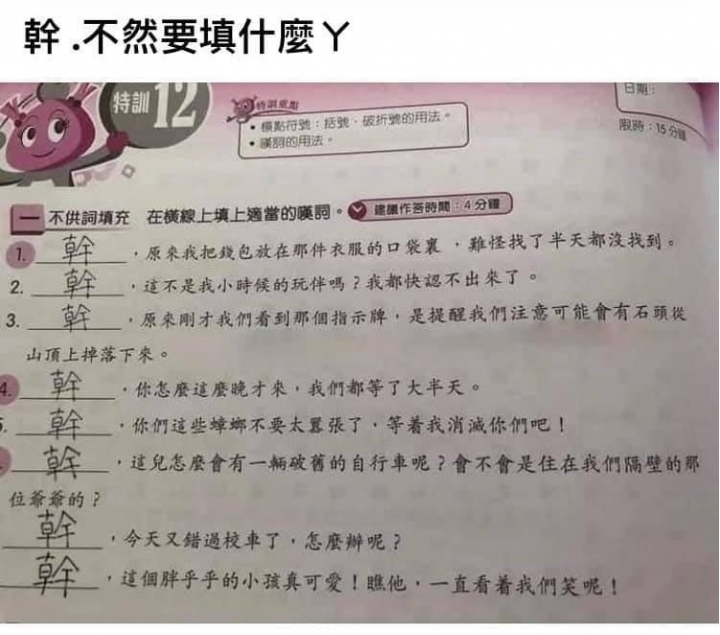 幹 .不然要填什麼ㄚ
特訓12
特訓重點
• 標點符號：括號、破折號的用法。
• 嘆詞的用法。
日期：
限時：15分鐘
一 不供詞填充 在橫線上填上適當的嘆詞。 建議作答時間：4分鐘
1. 幹，原來我把錢包放在那件衣服的口袋裏，難怪找了半天都沒找到。
2. 幹，這不是我小時候的玩伴嗎？我都快認不出來了。
3. 幹，原來剛才我們看到那個指示牌，是提醒我們注意可能會有石頭從
山頂上掉落下來。
4. 幹，你怎麼這麼晚才來，我們都等了大半天。
幹，你們這些蟑螂不要太囂張了，等着我消滅你們吧！
幹，這兒怎麼會有一輛破舊的自行車呢？會不會是住在我們隔壁的那
位爺爺的？
幹，今天又錯過校車了，怎麼辦呢？
幹，這個胖乎乎的小孩真可愛！瞧他，一直看着我們笑呢！